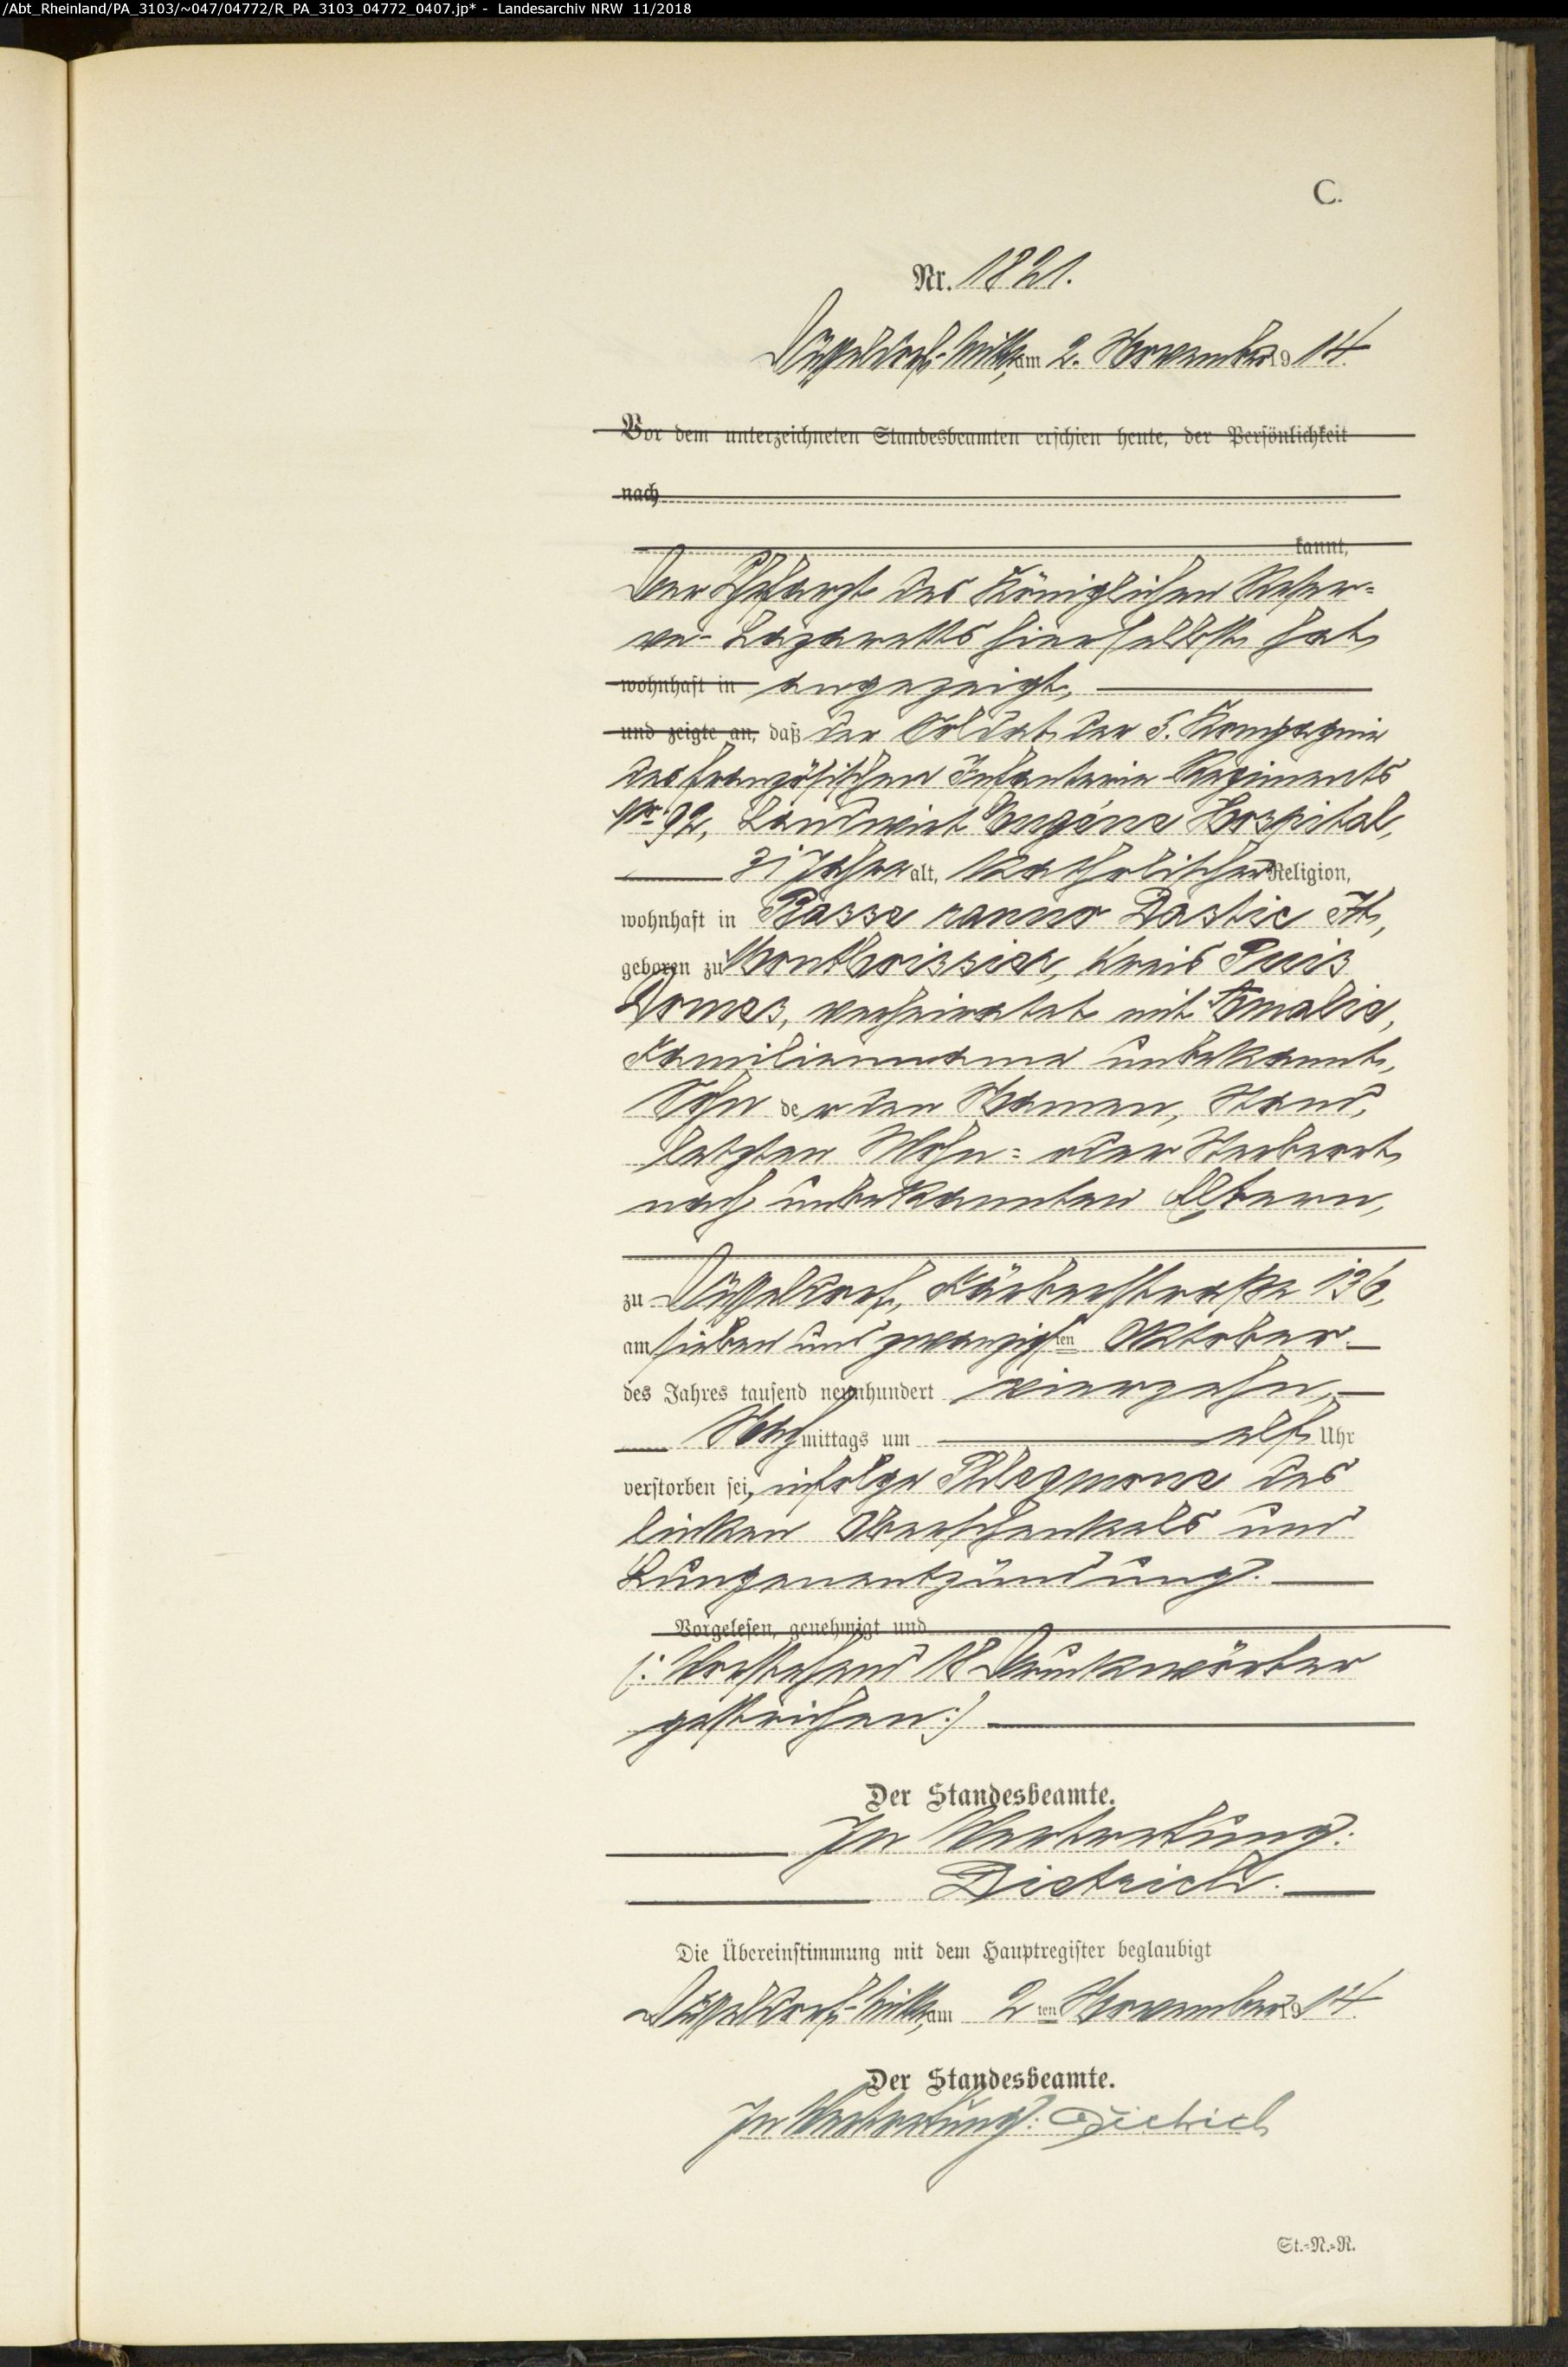 /Abt_Rheinland/PA_3103/~047/04772/R_PA_3103_04772_0407.jp* - Landesarchiv NRW 11/2018
C.
Nr. 1821.
Düsseldorf-Mitte, am 2. November 1914.
Vor dem unterzeichneten Standesbeamten erschien heute, der Persönlichkeit
nach
kannt,
Der Chefarzt des Königlichen Reser-
ve-Lazaretts hierselbst hat
wohnhaft in angezeigt,
und zeigte an, daß der Soldat der 5. Kompagnie
des französischen Infanterie Regiments
Nr. 92, Landwirt Eugéne Hospital,
31 Jahre alt, katholischer Religion,
wohnhaft in Basse Dastic
geboren zu Montboissier, Kreis Puis
Domes, verheiratet mit Amalie,
Familienname unbekannt,
Sohn der den Namen, Stand,
letzten Wohn- oder Sterbeort
nach unbekannten Eltern,
zu Düsseldorf, Färberstraße 136,
am sieben und zwanzigsten Oktober
des Jahres tausend neunhundert vierzehn,
Nachmittags um elf Uhr
verstorben sei, infolge Phlegmone des
linken Oberschenkels und
Lungenentzündung.
Vorgelesen, genehmigt und
(: Vorstehend 18 Druckwörter
gestrichen :)
Der Standesbeamte.
In Vertretung:
Dietrich.
Die Übereinstimmung mit dem Hauptregister beglaubigt
Düsseldorf-Mitte, am 2ten November 1914.
Der Standesbeamte.
In Vertretung: Dietrich
St.-N.-R.